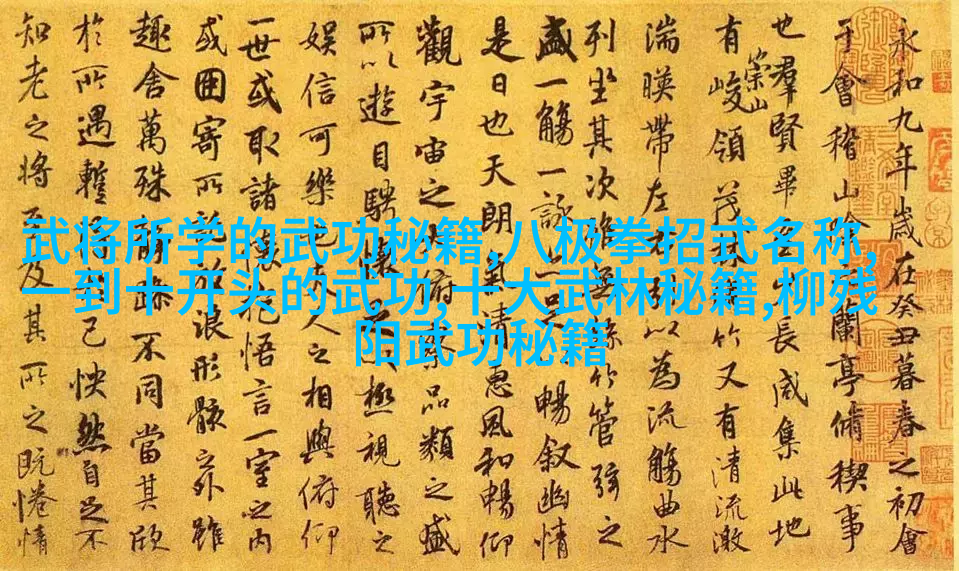 武将所学的武功秘籍,八极拳招式名称,
一到十开头的武功,十大武林秘籍,柳残
阳武功秘籍
永和九年歲在癸丑暮春之初會
于會稽山陰之蘭亭脩稧事
也羣賢畢至少長咸集此地
有崇山峻領茂林脩竹又有清流激
湍暎帶左右引以為流觴曲水
列坐其次雖無絲竹管弦之
盛一觴一詠亦足以暢叙幽情
是日也天朗氣清惠風和暢仰
觀宇宙之大俯察品類之盛
所以遊目騁懷足以極視聽之
娛信可樂也夫人之相與俯仰
一世或取諸懷抱悟言一室之內
或因寄所託放浪形骸之外雖
趣舍萬殊靜躁不同當其欣
於所遇蹔得於己怏然自足不
知老之將至及其所之既惓情